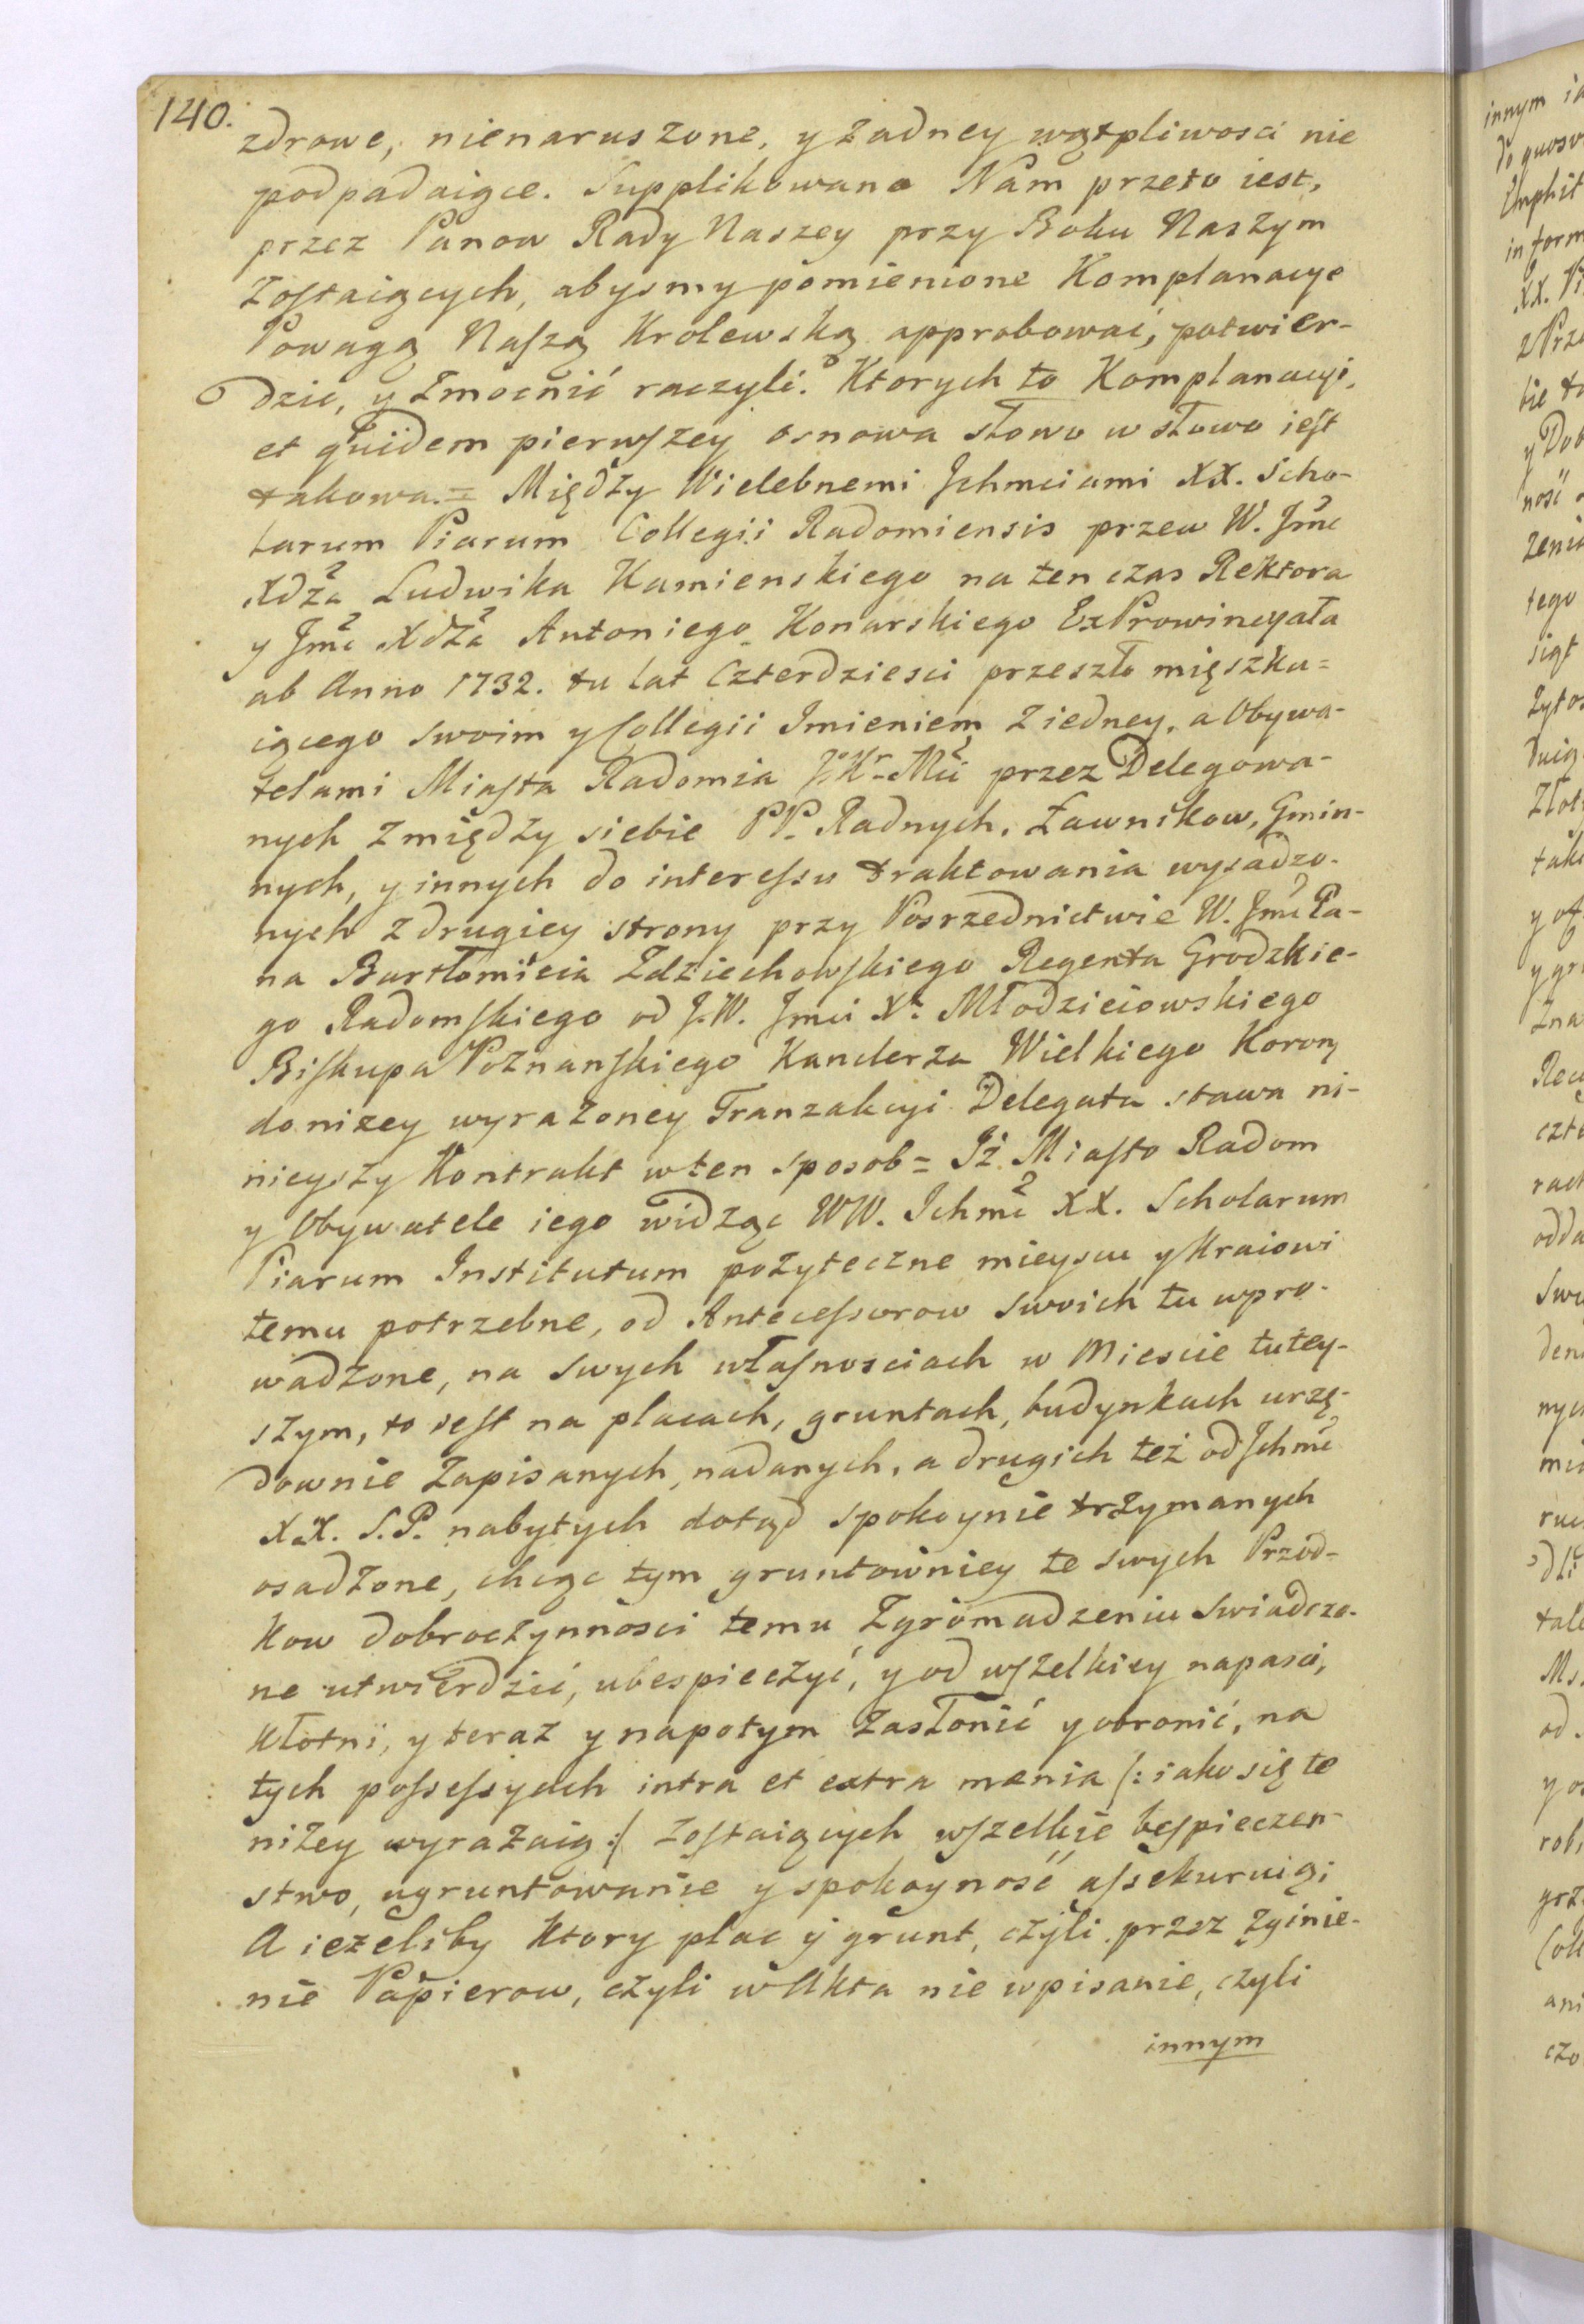 140.
zdrowe, nienaruszone, y żadney wątpliwosci nie
podpadaiące. Supplikowano Nam przeto iest,
przez Panow Rady Naszey przy Boku Naszym
Zostaiących, abysmy pomienione Komplanacye
Powagą Naszą Krolewską approbować, potwier-
dzic, y Zmocnić raczyli. Ktorych to Komplanacyi,
et quidem pierwszey osnowa słowo w słowo iest
takowa. = Między Wielebnemi Jchmciami XX. Scho-
larum Piarum Collegii Radomiensis przez W. Jmć
Xdza Ludwika Kamienskiego na ten czas Rektora
y Jmć Xdza Antoniego Konarskiego ExProwincyała
ab Anno 1732. tu lat Czterdziesci przeszło mięszka=
iącego swoim y Collegii Imieniem z iedney, a Obywa-
telami Miasta Radomia J. Kr. Mci przez Delegowa-
nych z między siebie PP. Radnych, Ławnikow, Gmin-
nych, y innych do interessu traktowania wysadzo-
nych z drugiey strony przy Posrzednictwie W. Jmć Pa-
na Bartłomieia Zdziechowskiego Regenta Grodzkie-
go Radomskiego od J.W. Jmci Xa. Młodzieiowskiego
Biskupa Poznanskiego Kanclerza Wielkiego Korony
do nizey wyrazoney Tranzakcyi Delegata stawa ni-
nieyszy Kontrakt w ten sposob = Iż Miasto Radom
y Obywatele iego widząc WW. Ichmć XX. Scholarum
Piarum Institutum pożyteczne mieyscu y Kraiowi
temu potrzebne, od Antecessorow swoich tu wpro-
wadzone, na swych własnosciach w Miescie tutey-
szym, to iest na placach, gruntach, budynkach urzę-
downie Zapisanych, nadanych, a drugich też od Jchmć
XX. S.P. nabytych dotąd spokoynie trzymanych
osadzone, chcąc tym gruntowniey te swych Przod-
kow dobroczynnosci temu Zgromadzeniu swiadczo-
ne utwierdzić, ubespieczyć, y od wszelkiey napasci,
Kłotni, y teraz y napotym zasłonić y obronić, na
tych possessyach intra et extra mænia /: iako się te
niżey wyrażaią :/ zostaiących wszelkie bespieczen-
stwo, ugruntowanie y spokoyność assekuruią;
A ieżeliby Ktory plac y grunt, czyli przez zginie-
nie Papierow, czyli w Akta nie wpisanie, czyli
innym